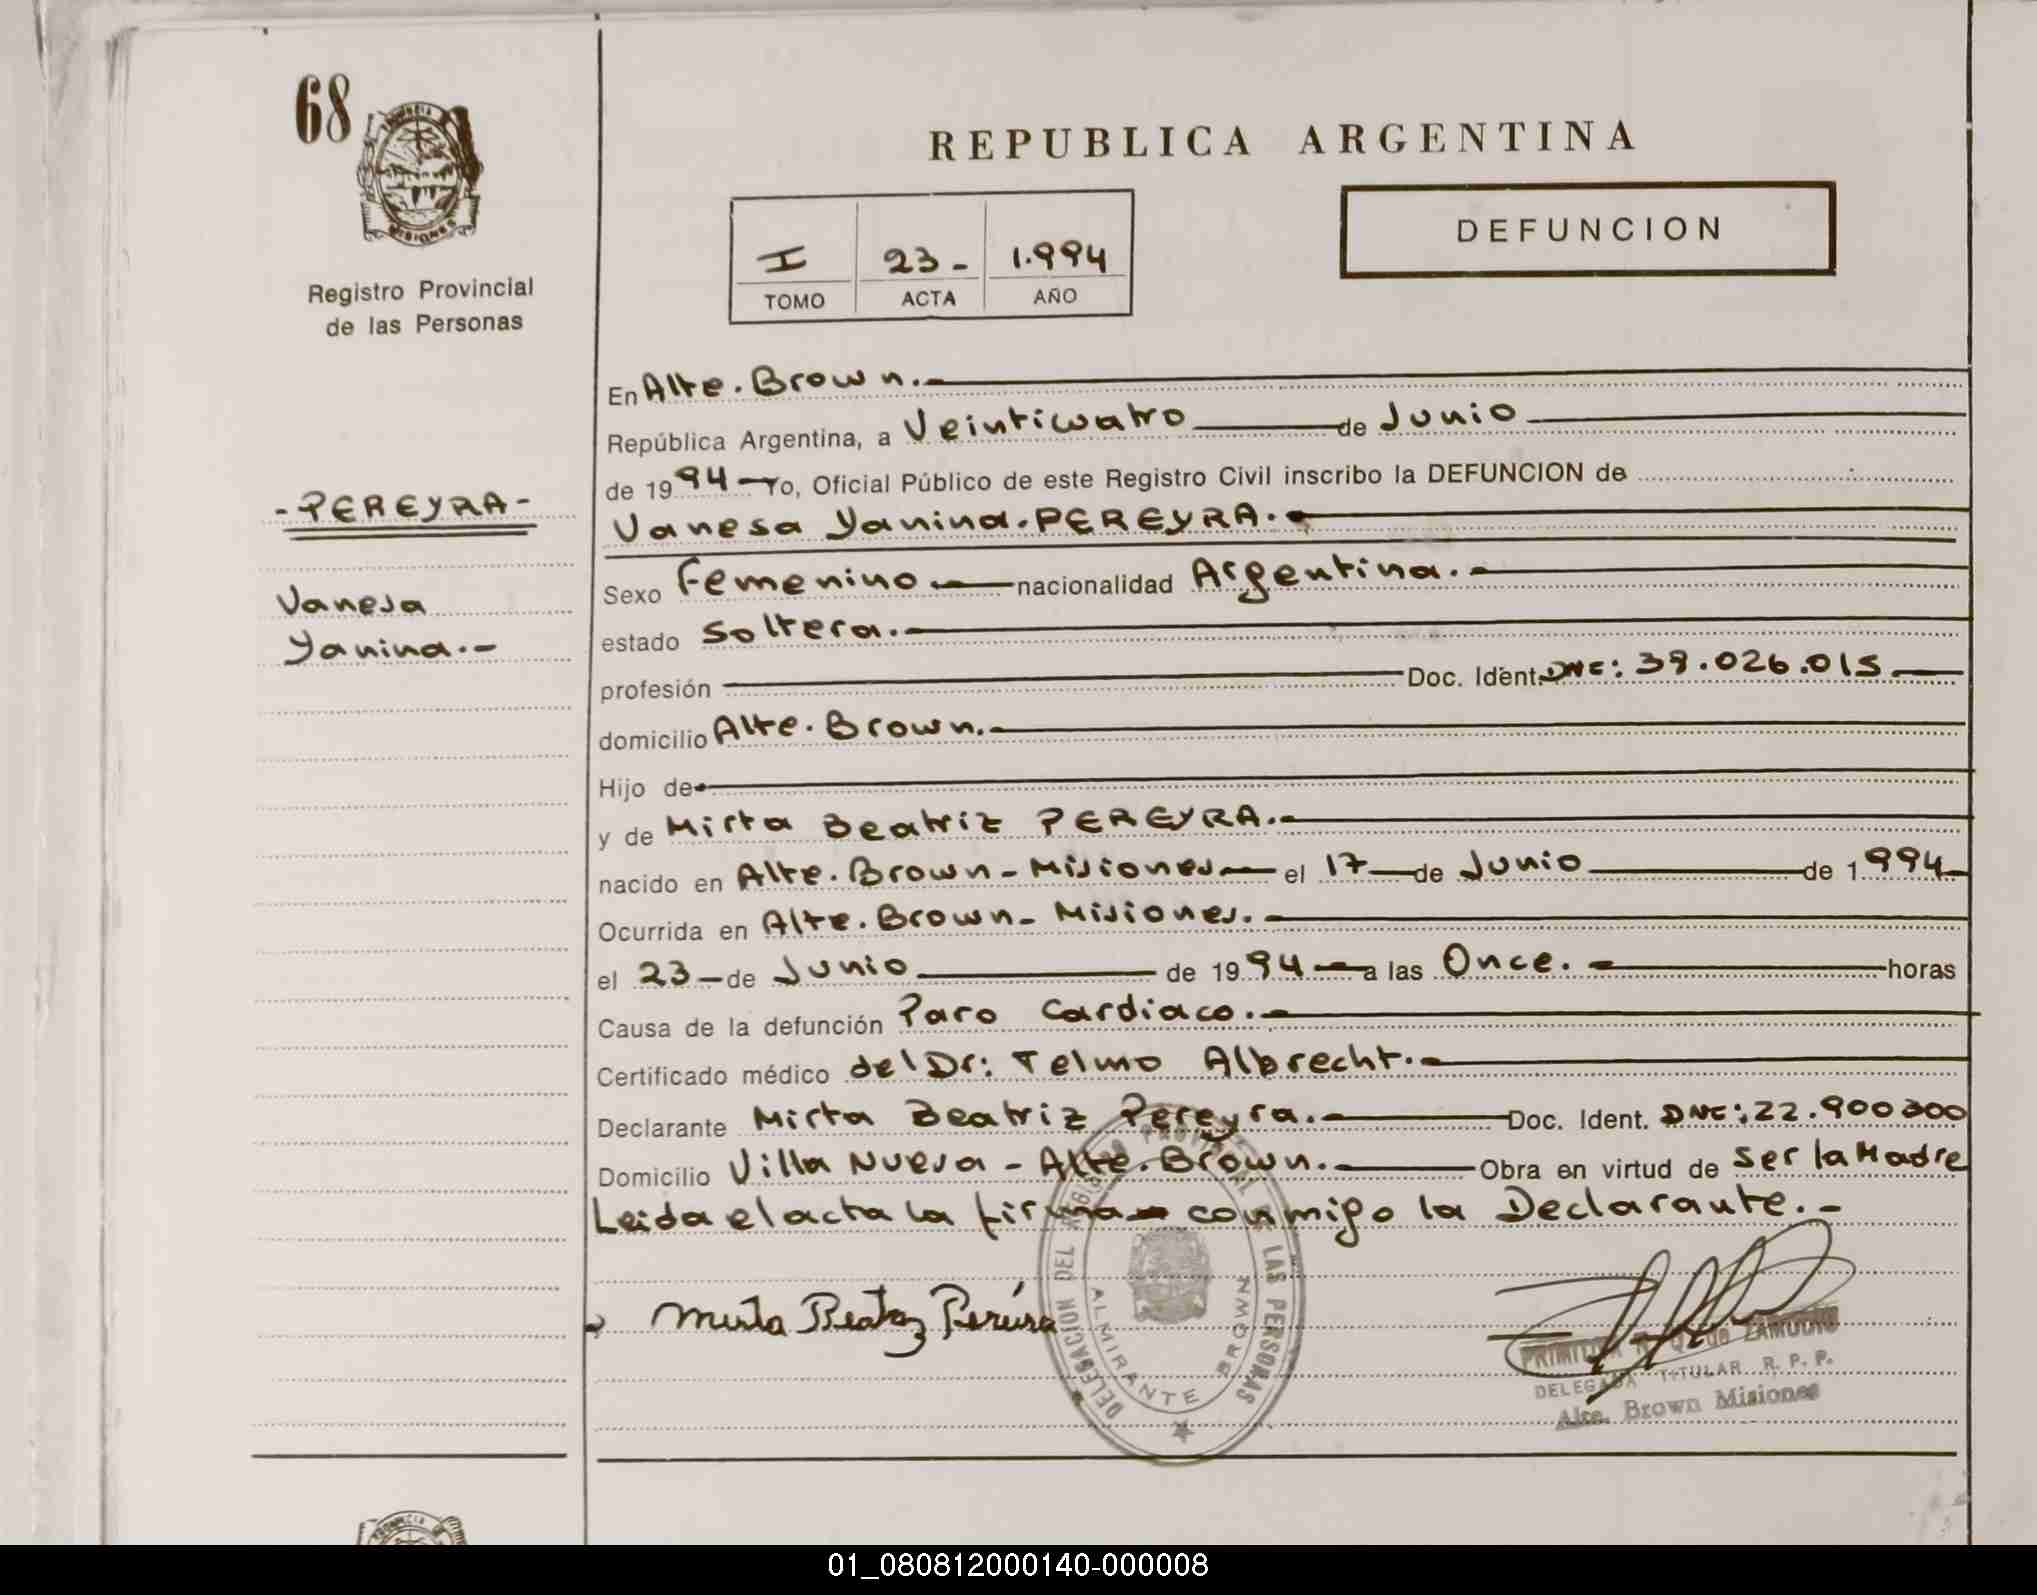 68
PROVINCIA DE
MISIONES
Registro Provincial
de las Personas
REPUBLICA ARGENTINA
I 23- 1.994
TOMO ACTA AÑO
DEFUNCION
- PEREYRA -
Vanesa
Yanina.-
En Alte. Brown.-
República Argentina, a Veinticuatro de Junio
de 1994 Yo, Oficial Público de este Registro Civil inscribo la DEFUNCION de
Vanesa Yanina PEREYRA.-
Sexo Femenino nacionalidad Argentina.-
estado Soltera.-
profesión Doc. Ident. DNI: 39.026.015
domicilio Alte. Brown.-
Hijo de
y de Mirta Beatriz PEREYRA.-
nacido en Alte. Brown - Misiones el 17 de Junio de 1994
Ocurrida en Alte. Brown - Misiones.-
el 23 de Junio de 1994 a las Once.- horas
Causa de la defunción Paro Cardiaco.-
Certificado médico del Dr: Telmo Albrecht.-
Declarante Mirta Beatriz Pereyra.- Doc. Ident. DNI: 22.900300
Domicilio Villa Nueva - Alte. Brown.- Obra en virtud de Ser la Madre
Leida el acta la firma conmigo la Declarante.-
Mirta Beatriz Pereira
DELEGACION DEL REGISTRO PROVINCIAL DE LAS PERSONAS
ALMIRANTE BROWN
de ZAMUDIO
DELEGADA TITULAR R. P. P.
Alte. Brown Misiones
01_080812000140-000008